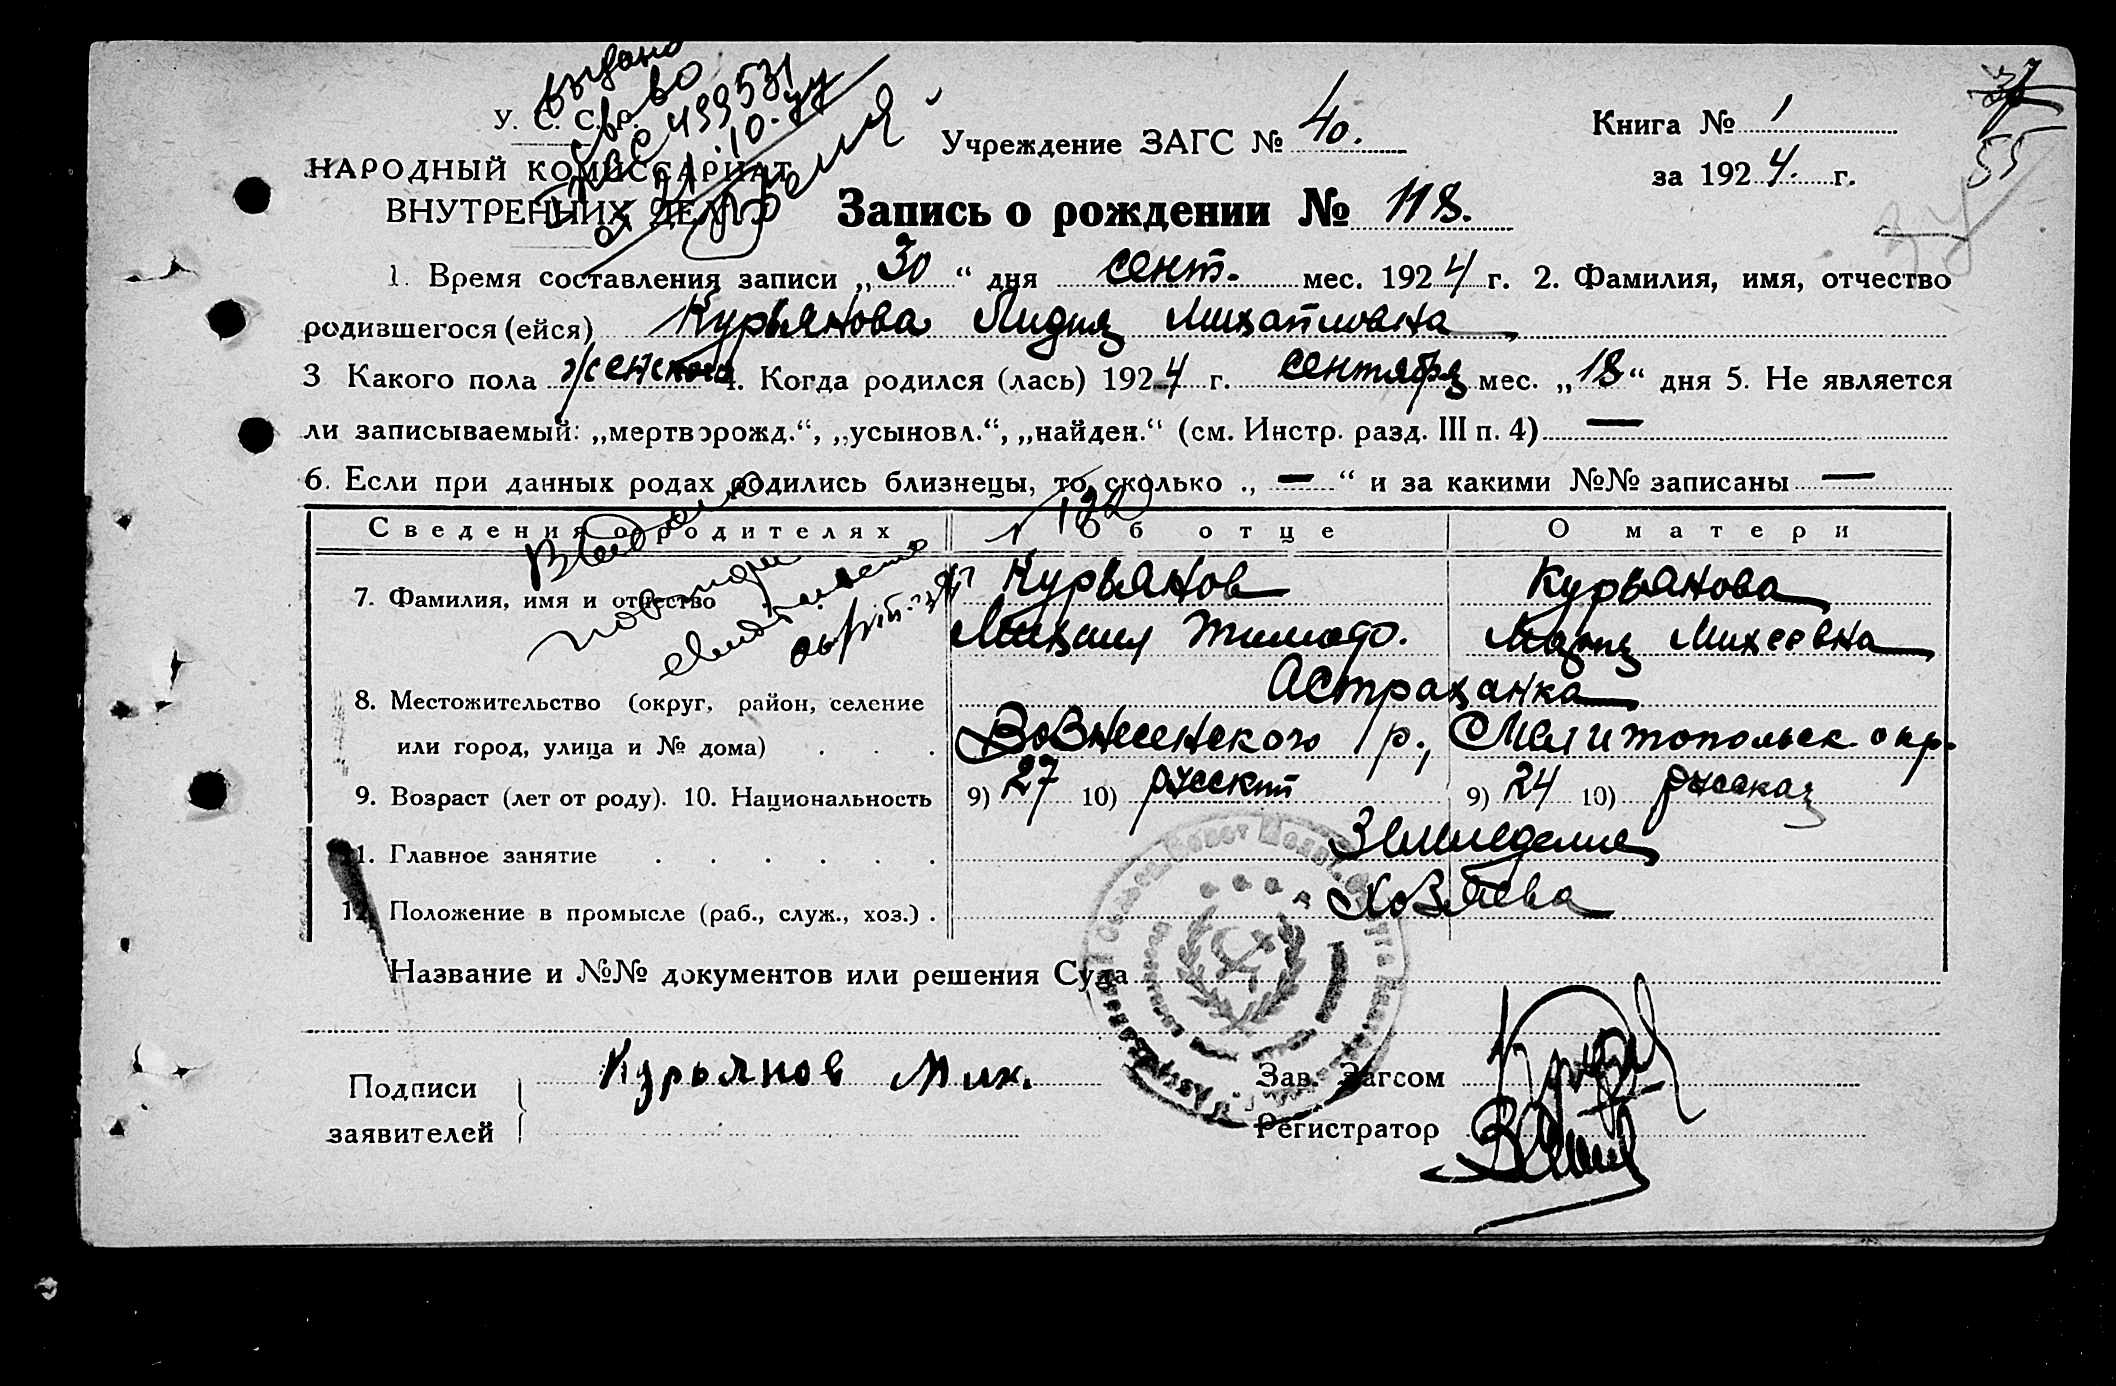 У. С. С. Р.
НАРОДНЫЙ КОМИССАРИАТ
ВНУТРЕННИХ ДЕЛ
выдано
св во
499531
Учреждение ЗАГС № 40.
Книга № 1
за 1924. г.
55
Запись о рождении № 118.
1. Время составления записи „30“ дня сент. мес. 1924 г. 2. Фамилия, имя, отчество
родившегося (ейся) Курьянова Лидия Михайловна
3 Какого пола женского 4. Когда родился (лась) 1924 г. сентября мес. „18“ дня 5. Не является
ли записываемый: „мертворожд.“, „усыновл.“, „найден.“ (см. Инстр. разд. III п. 4) —
6. Если при данных родах родились близнецы, то сколько „—“ и за какими №№ записаны —
Сведения о родителях Об отце О матери
7. Фамилия, имя и отчество Курьянов Курьянова
Михаил Тимоф. Мария Михеевна
8. Местожительство (округ, район, селение Астраханка
или город, улица и № дома) . . . Вознесенского р., Мелитопольск. окр.
9. Возраст (лет от роду). 10. Национальность 9) 27 10) русский 9) 24 10) русская
11. Главное занятие . . . . . . Земледелие
12. Положение в промысле (раб., служ., хоз.) . Хозяева
Название и №№ документов или решения Суда
Подписи
заявителей
Курьянов Мих.
Зав. Загсом
Регистратор